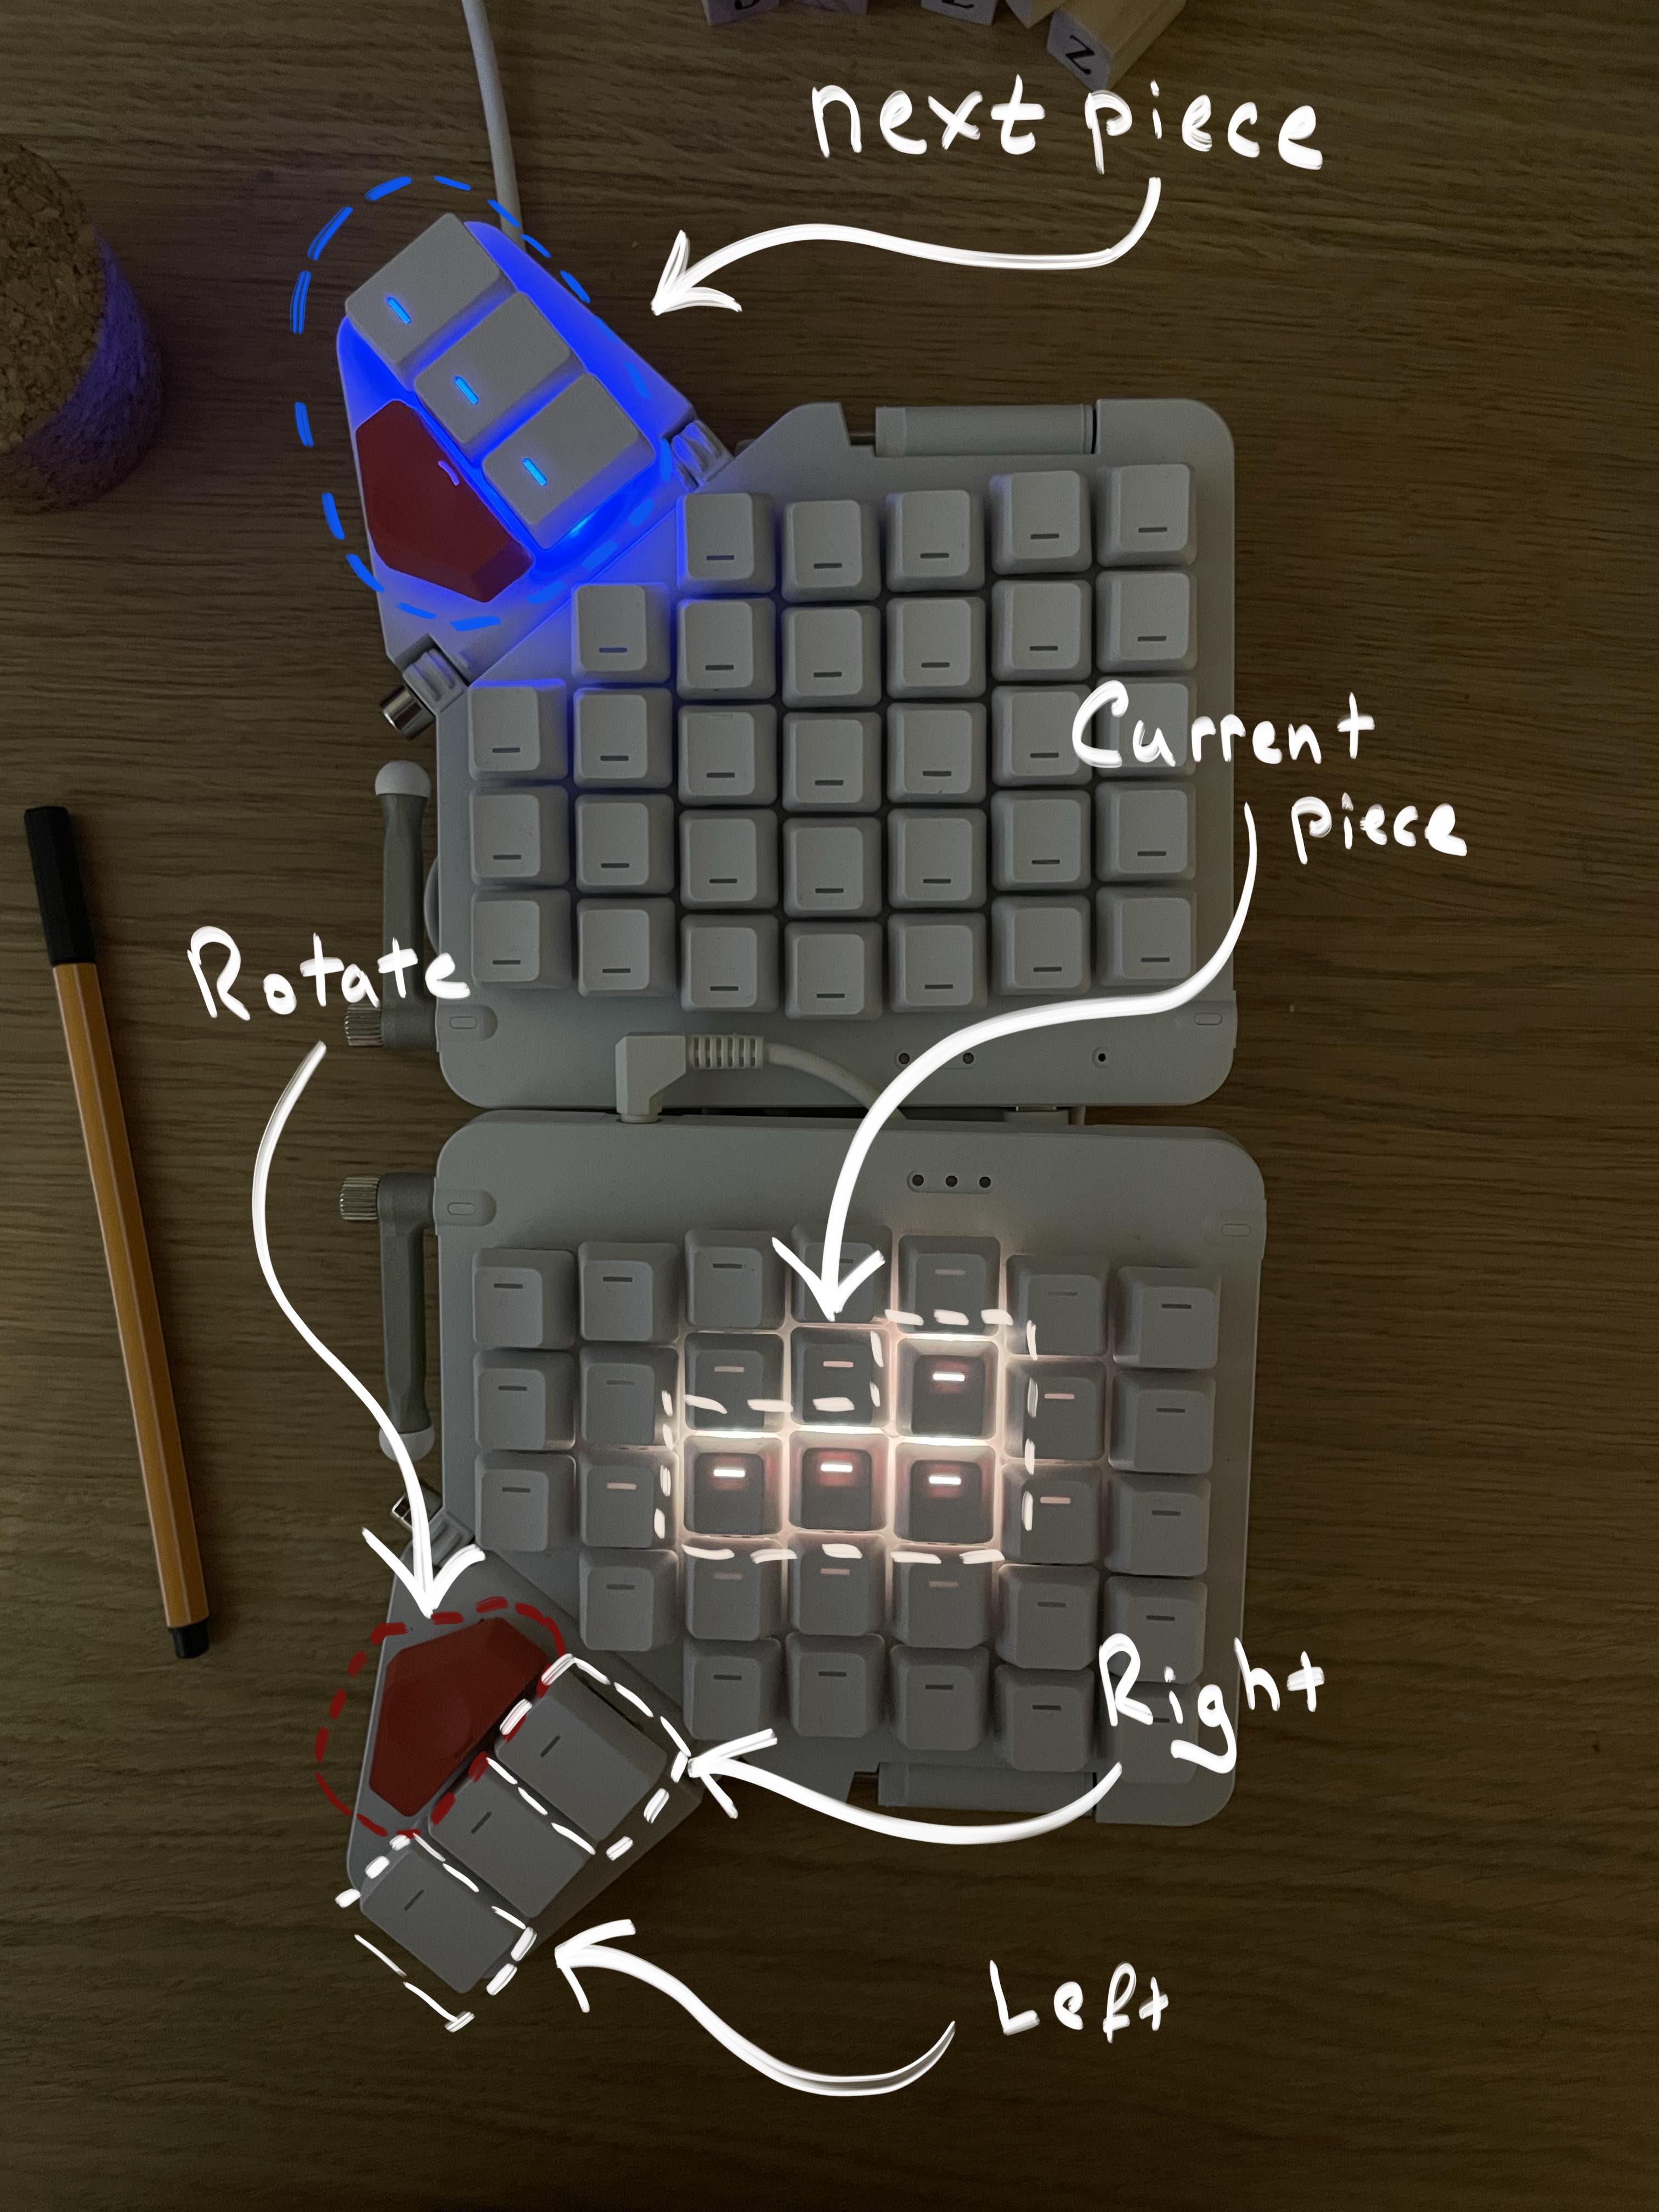 Z
next piece
Current
piece
Rotate
Right
Left